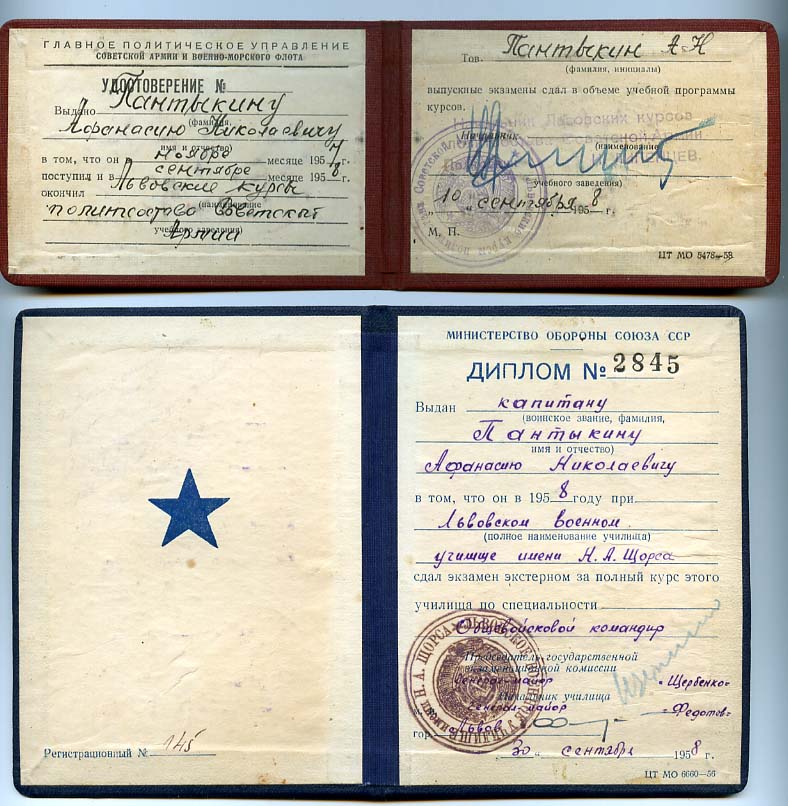 ГЛАВНОЕ ПОЛИТИЧЕСКОЕ УПРАВЛЕНИЕ
СОВЕТСКОЙ АРМИИ И ВОЕННО-МОРСКОГО ФЛОТА
УДОСТОВЕРЕНИЕ №
Выдано Пантыкину
(фамилия,
Афанасию Николаевичу
имя и отчество)
в том, что он ноябре месяце 1957 г.
поступил и в сентябре месяце 1958 г.
окончил Львовские курсы
(наименование
политсостава Советской
учебного заведения)
Армии
Тов. Пантыкин А Н
(фамилия, инициалы)
выпускные экзамены сдал в объеме учебной программы
курсов.
Начальник Львовских курсов
Начальник
Советской Армии
(наименование
учебного заведения)
„10 „ сентября 1958 г.
М. П.
ЦТ МО 5478—58
МИНИСТЕРСТВО ОБОРОНЫ СОЮЗА ССР
ДИПЛОМ № 2845
Выдан капитану
(воинское звание, фамилия,
Пантыкину
имя и отчество)
Афанасию Николаевичу
в том, что он в 1958 году при
Львовском Военном
(полное наименование училища)
училище имени Н. А. Щорса
сдал экзамен экстерном за полный курс этого
училища по специальности
Общевойсковой командир
Председатель государственной
экзаменационной комиссии
Генерал-майор «Щербенко»
Начальник училища
Генерал-майор «Федотов»
гор. Львов
„30 „ сентября 1958 г.
Регистрационный № 145
ЦТ МО 6660—56